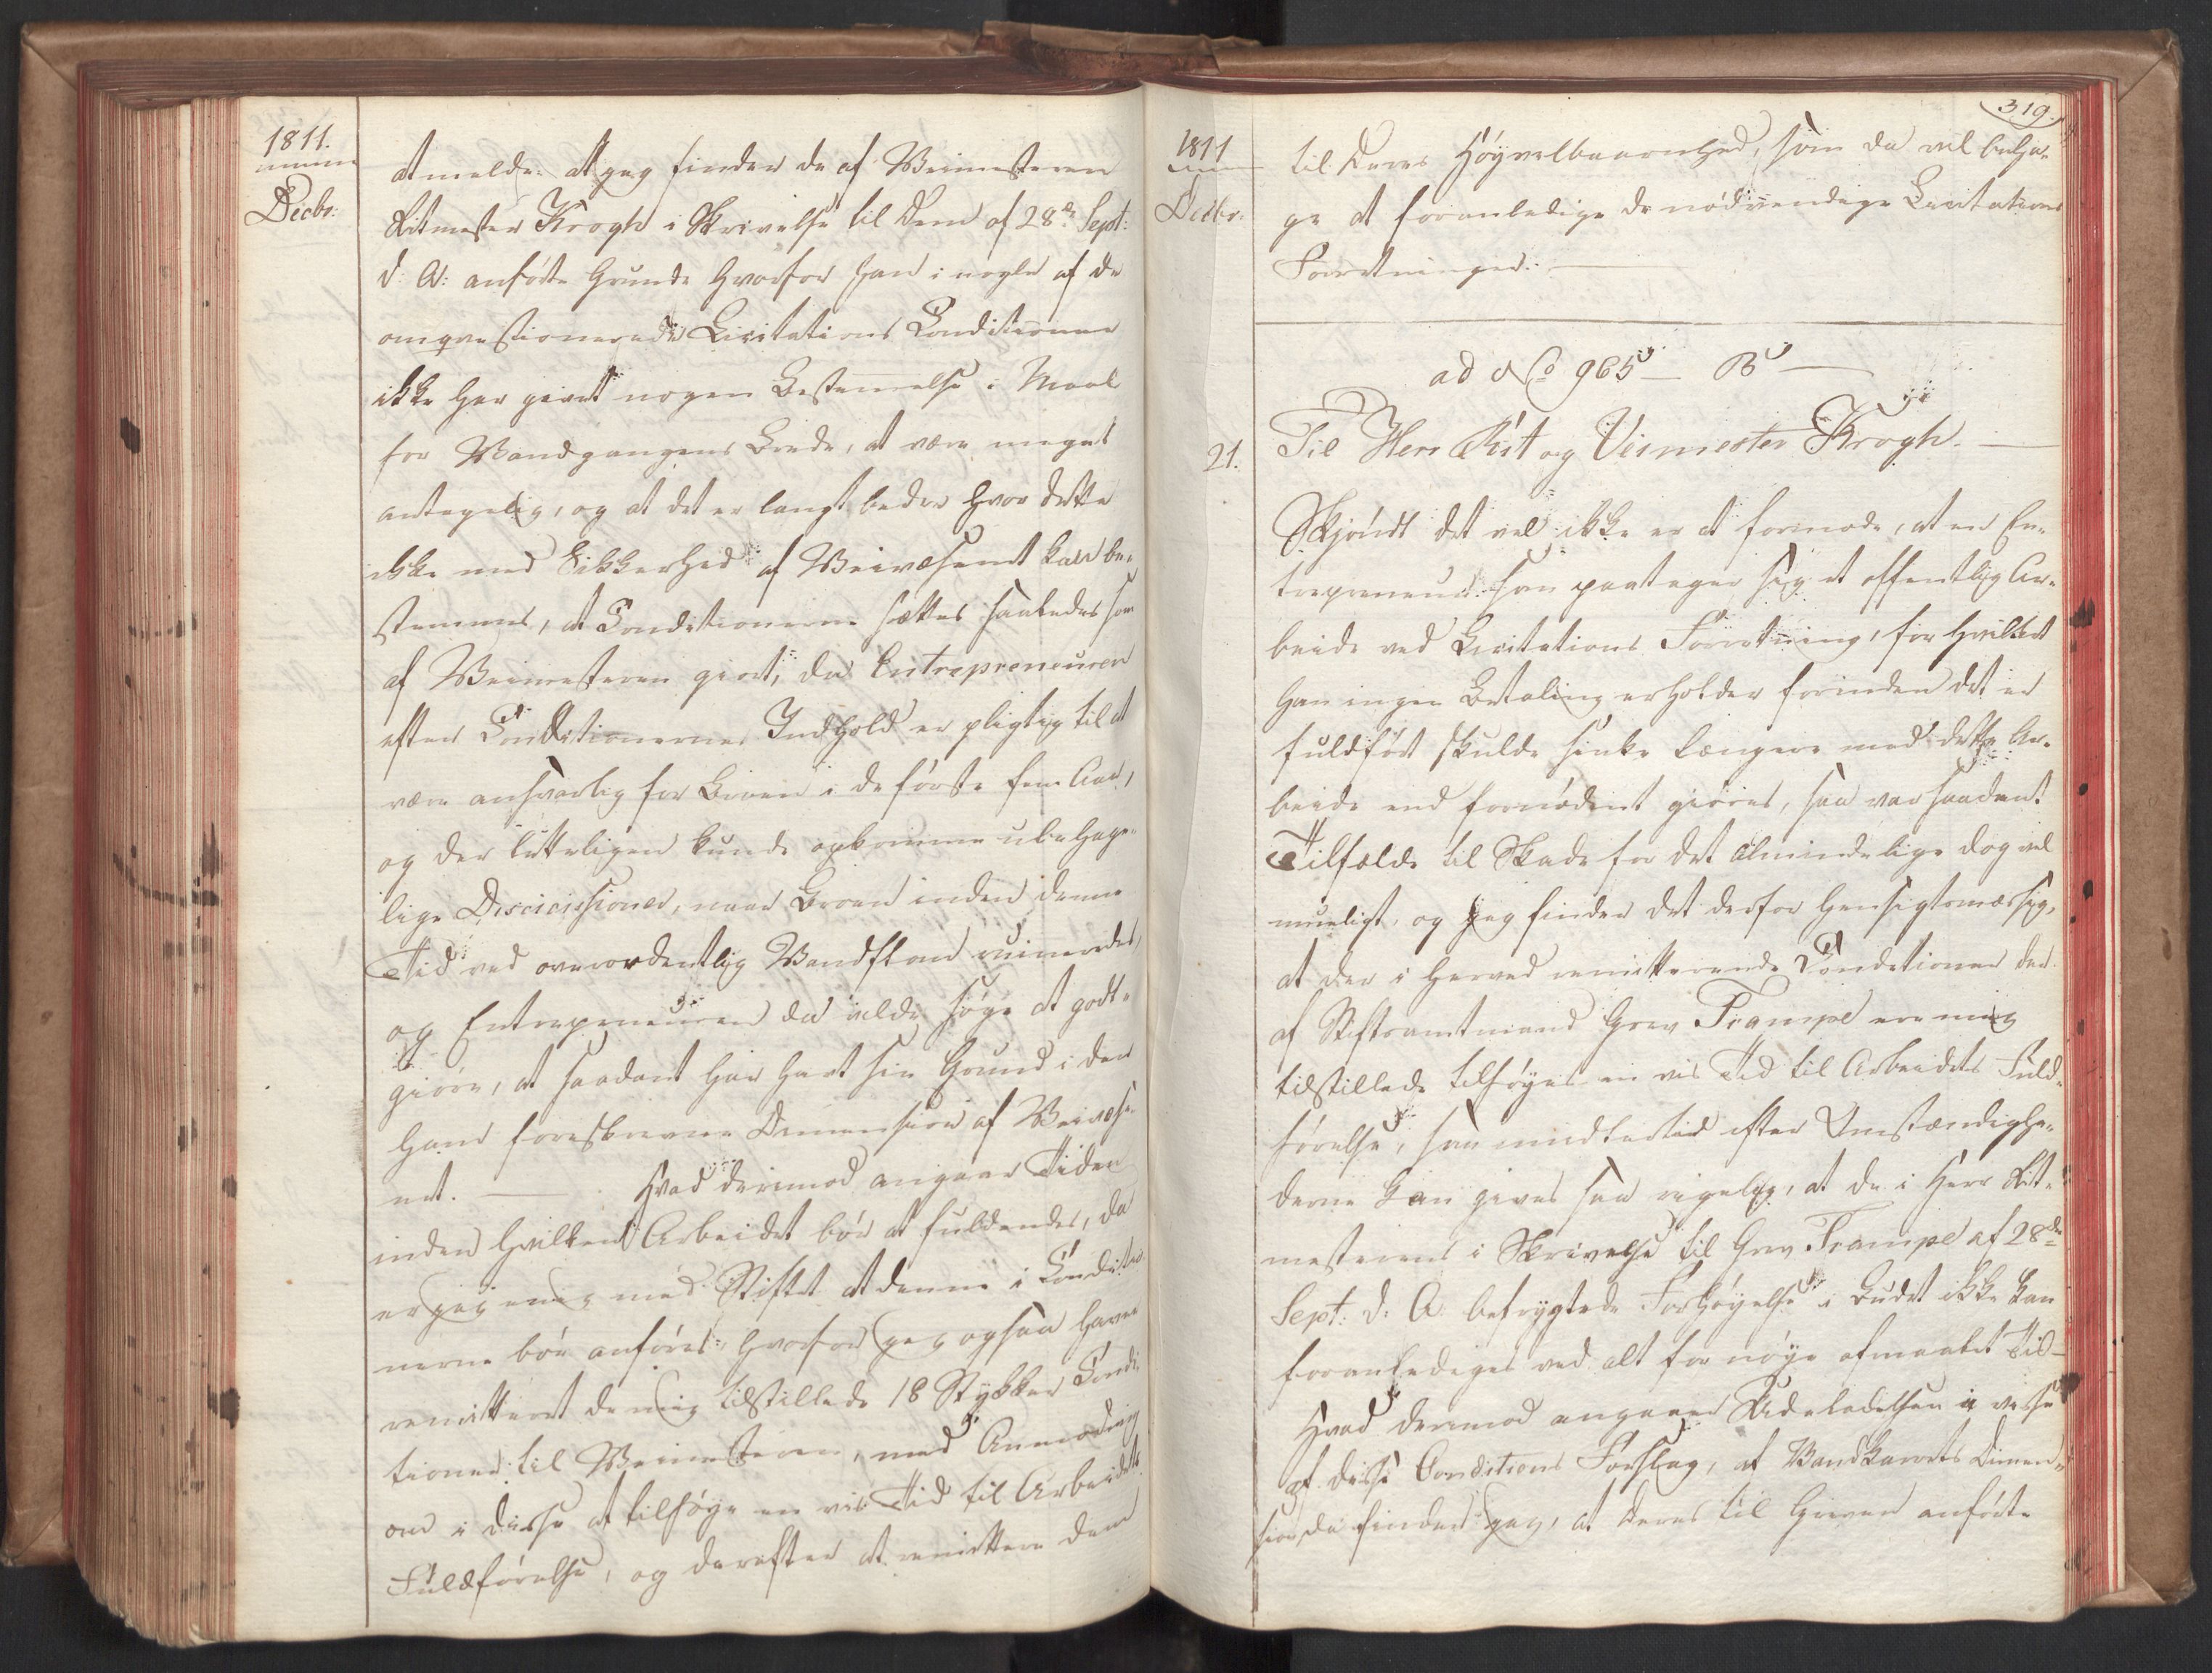 1811.
Decbr:
at melde: at jeg finder de af Veimesteren
Ritmester Krogh i Skrivelse til Dem af 28de Sept:
d: A: anførte Grunde hvorfor han i nogle af de
omqvæstionerede Licitations Conditioner
ikke har givet nogen Bestemmelse i Maal
for Vandgangens Brede, at være meget
antagelig, og at det er langt bedre hvor dette
ikke med Sikkerhed af Veivæsenet kan be-
stemmes, at Conditionerne sættes saaledes som
af Veimesteren giort, da Entrepreneuren
efter Conditionernes Indhold er pligtig til at
være ansvarlig for Broen i de første fem Aar,
og der letteligen kunde opkomme ubehage-
lige Discussioner, naar Broen inden denne
Tid ved overordentlig Vandflom ruineredes,
og Entrepreneuren da vilde søge at godt-
giøre, at saadant har havt sin Grund i den
ham foreskrevne Dimension af Veivæse-
net. — Hvad derimod angaaer Tiden
inden hvilken Arbeidet bør at fuldendes, da
er jeg enig med Stiftet at denne i Conditio-
nerne bør anføres, hvorfor jeg ogsaa haver
remitteret de mig tilstillede 18 Stykker Condi-
tioner til Veimesteren, med Anmodning
om i disse at tilføye en vis Tid til Arbeidets
Fuldførelse, og derefter at remittere dem
319.
1811
Decbr:
til Deres Høyvelbaarenhed, som da vil behage-
ge at foranledige de nødvendige Licitations
Forretninger. —
ad No 965 — B —
21.
Til Herr Rit og Veimester Krogh. —
Skjøndt det vel ikke er at formode, at en En-
trepreneur som paatager sig et offentlig Ar-
beide ved Licitations Forretning, for hvilket
han ingen Betaling erholder forinden det er
fuldført skulde sinke længere med dette Ar-
beide end fornødent giøres, saa var saadant
Tilfælde til Skade for det almindelige dog vel
mueligt, og jeg finder det derfor hensigtsmæssig,
at der i herved remitterende Conditioner der
af Stiftsamtmand Grev Trampe ere mig
tilstillede tilføyes en vis Tid til Arbeidets Fuld-
førelse, som imidlertid efter Omstændighe-
derne kan gives saa rigelig, at de i Herr Rit-
mesterens i Skrivelse til Grev Trampe af 28de
Sept: d: A: befrygtede Forhøyelse i Budet ikke kan
foranlediges ved alt for nøye afmaalt Tid —
Hvad derimod angaaer Udeladelsen i visse
af disse Conditions Forslag, af Vandkarets Dimen-
sion, da finder jeg, at Deres til Greven anførte